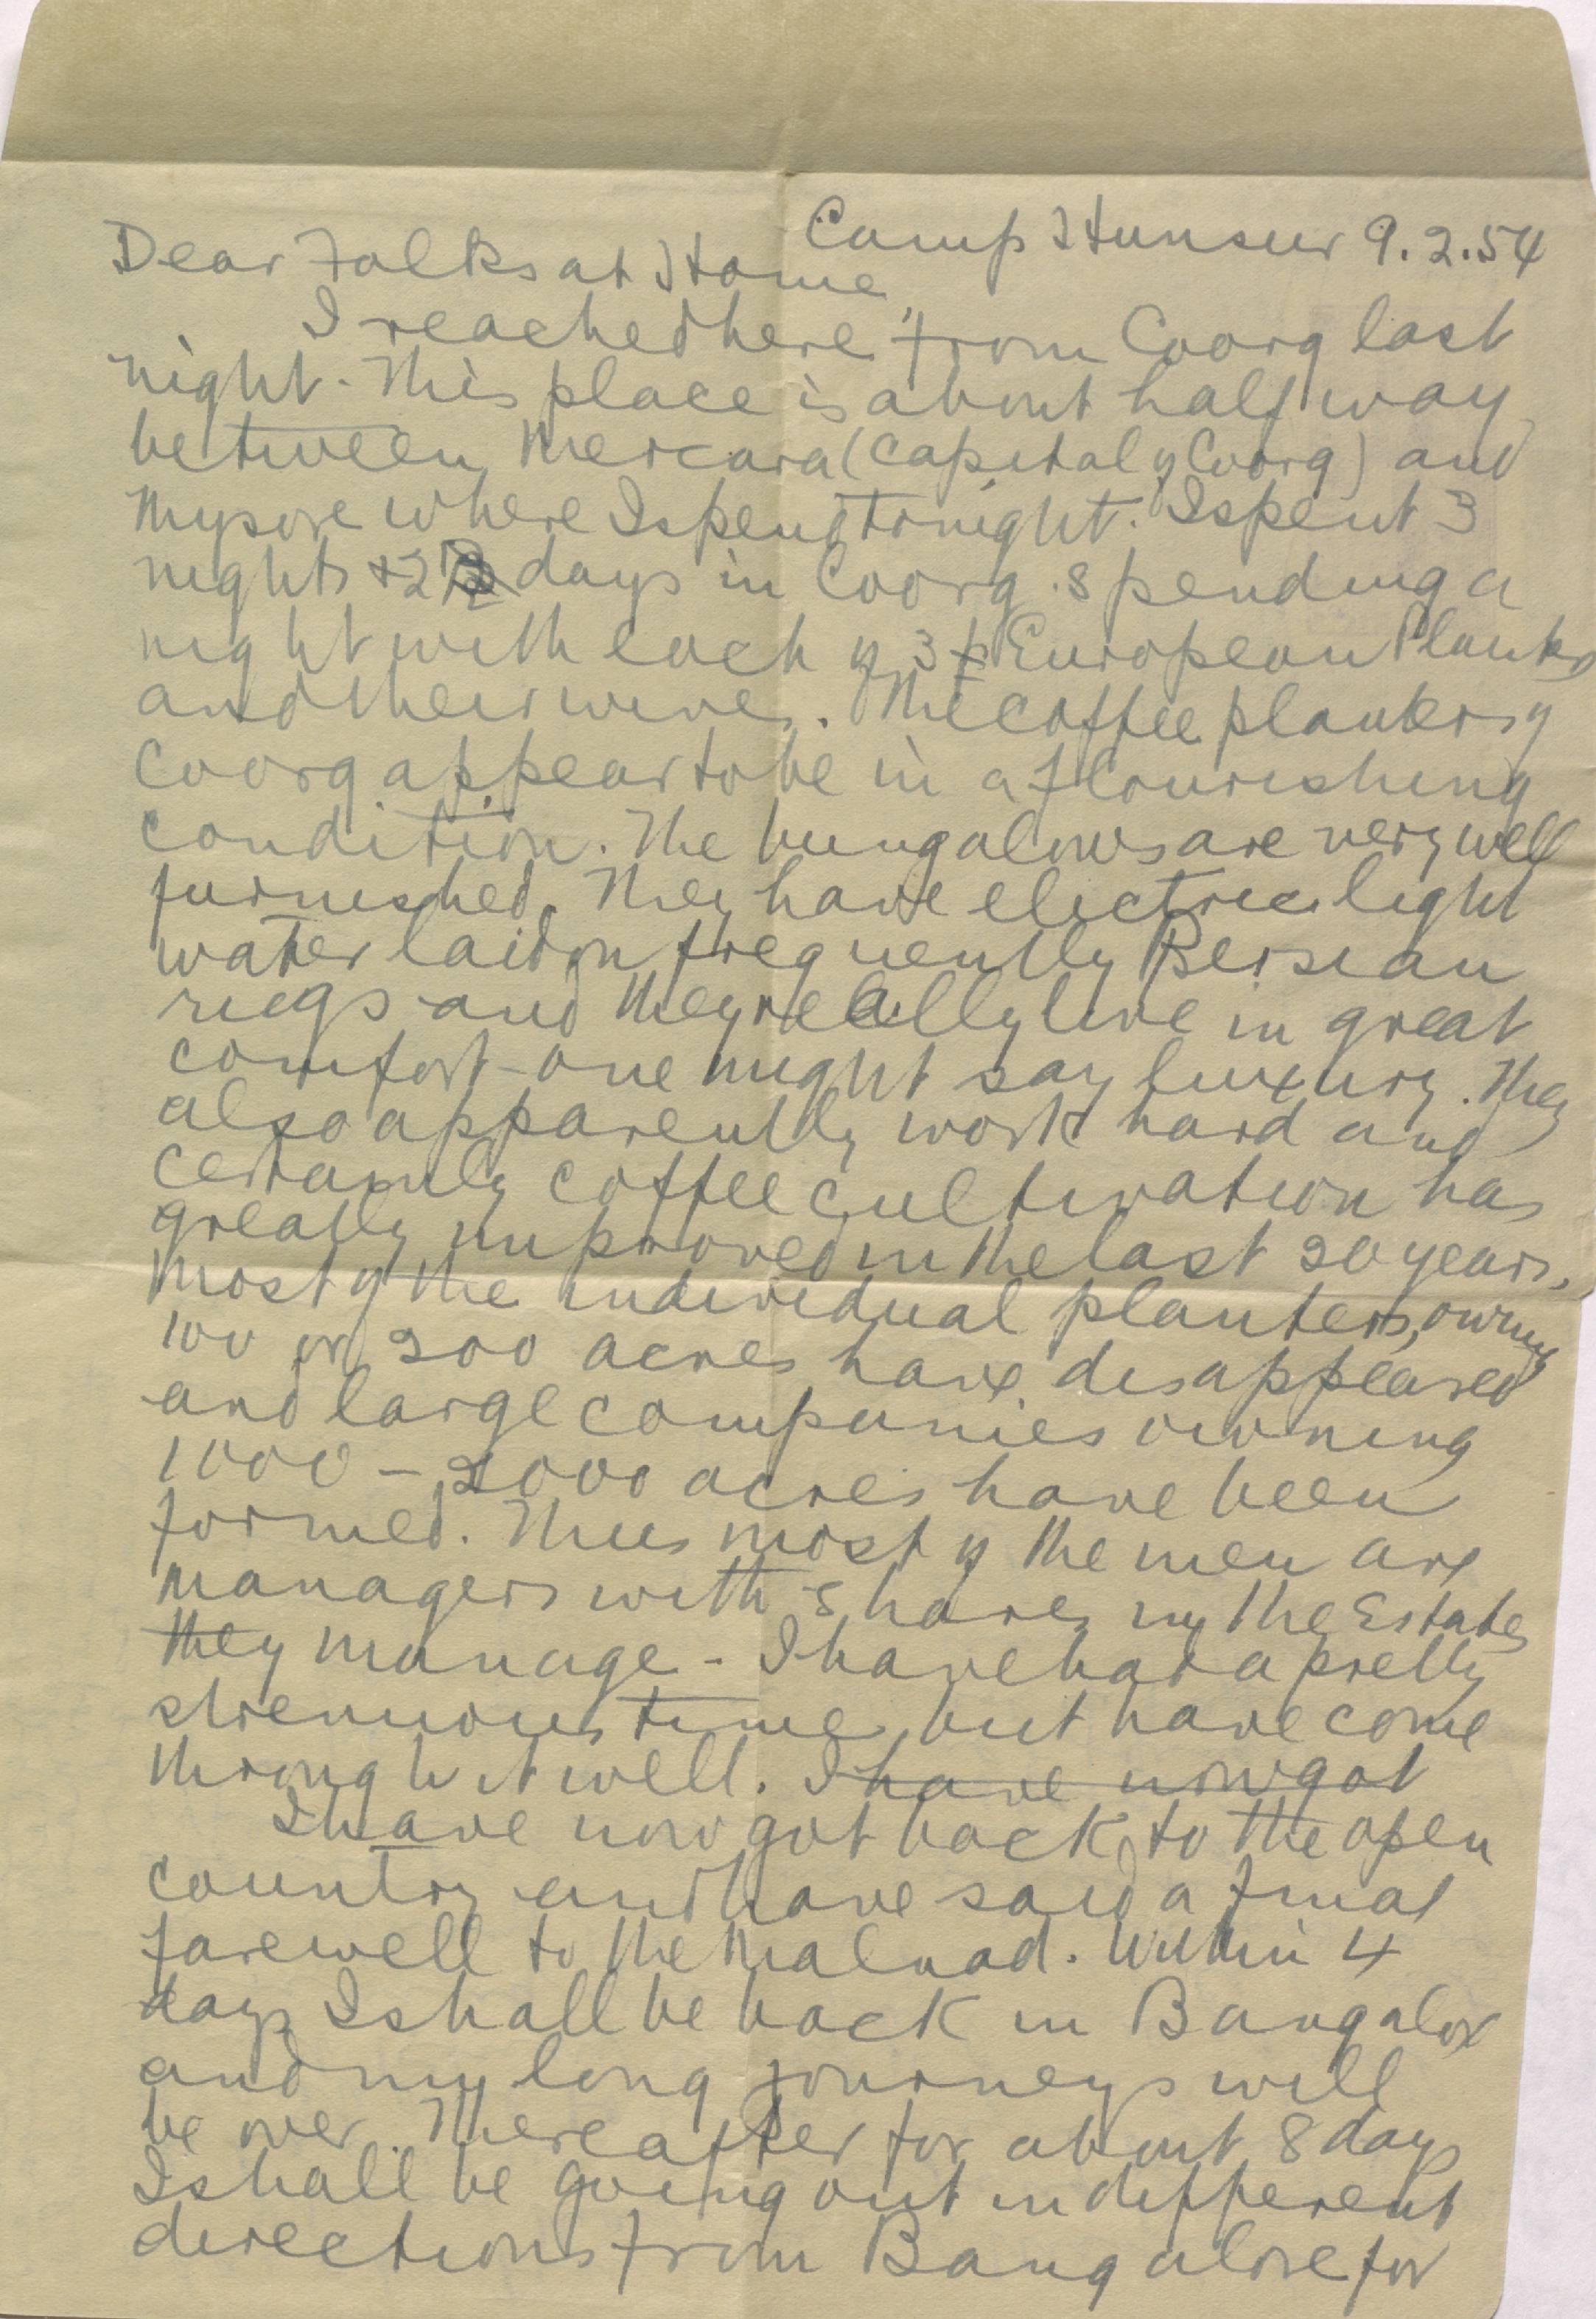 Camp Hunsur 9.2.54
Dear Folks at Home,
I reached here from Coorg last
night. This place is about half way
between Mercara (capital of Coorg) and
Mysore where I spend tonight. I spent 3
nights + 2 days in Coorg. spending a
night with each of 3 European Planters
and their wives. The coffee planters of
Coorg appear to be in a flourishing
condition. The bungalows are very well
furnished. They have electric light
water laid on frequently Persian
rugs and they really live in great
comfort - one might say luxury. They
also apparently work hard and
certainly coffee cultivation has
greatly improved in the last 20 years.
Most of the individual planters, owning
100 or 200 acres have disappeared
and large companies owning
1000 - 2000 acres have been
formed. Thus most of the men are
managers with shares in the Estates
they manage - I have had a pretty
strenuous time but have come
through it well. I have now got
I have now got back to the open
country and have said a final
farewell to the Malnad. Within 4
days I shall be back in Bangalore
and my long journeys will
be over. Thereafter for about 8 days
I shall be going out in different
directions from Bangalore for